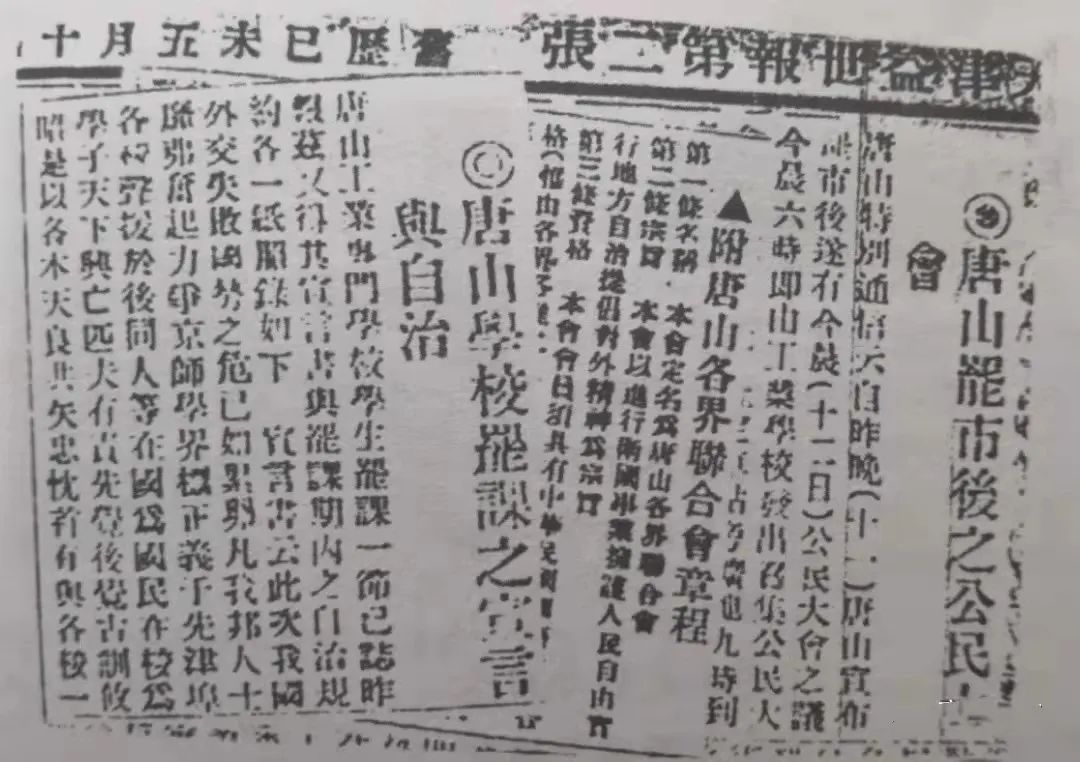 津益世報第二張
舊歷己未五月十
唐山罷市後之公民
會
唐山特別通信云自昨晚(十一)唐山宣布
罷市後遂有今晨(十二日)公民大會之議
今晨六時即山工業學校發出召集公民大
九時到
▲附唐山各界聯合會章程
第一條名稱 本會定名爲唐山各界聯合會
第二條宗旨 本會以進行衛國事業擁護人民自由實
行地方自治提倡對外精神爲宗旨
第三條資格 本會會員須具有中華民國
格(但由各界
◎唐山學校罷課之宣言
與自治
唐山工業專門學校學生罷課一節已誌昨
報茲又得其宣言書與罷課期內之自治規
約各一紙照錄如下 宣言書云此次我國
外交失敗國勢之危已如累卵凡我邦人士
靡弗奮起力爭京師學界標正義于先津埠
各校聲援於後同人等在國爲國民在校爲
學子天下興亡匹夫有責先覺後覺古訓攸
昭是以各本天良共矢忠忱首有與各校一